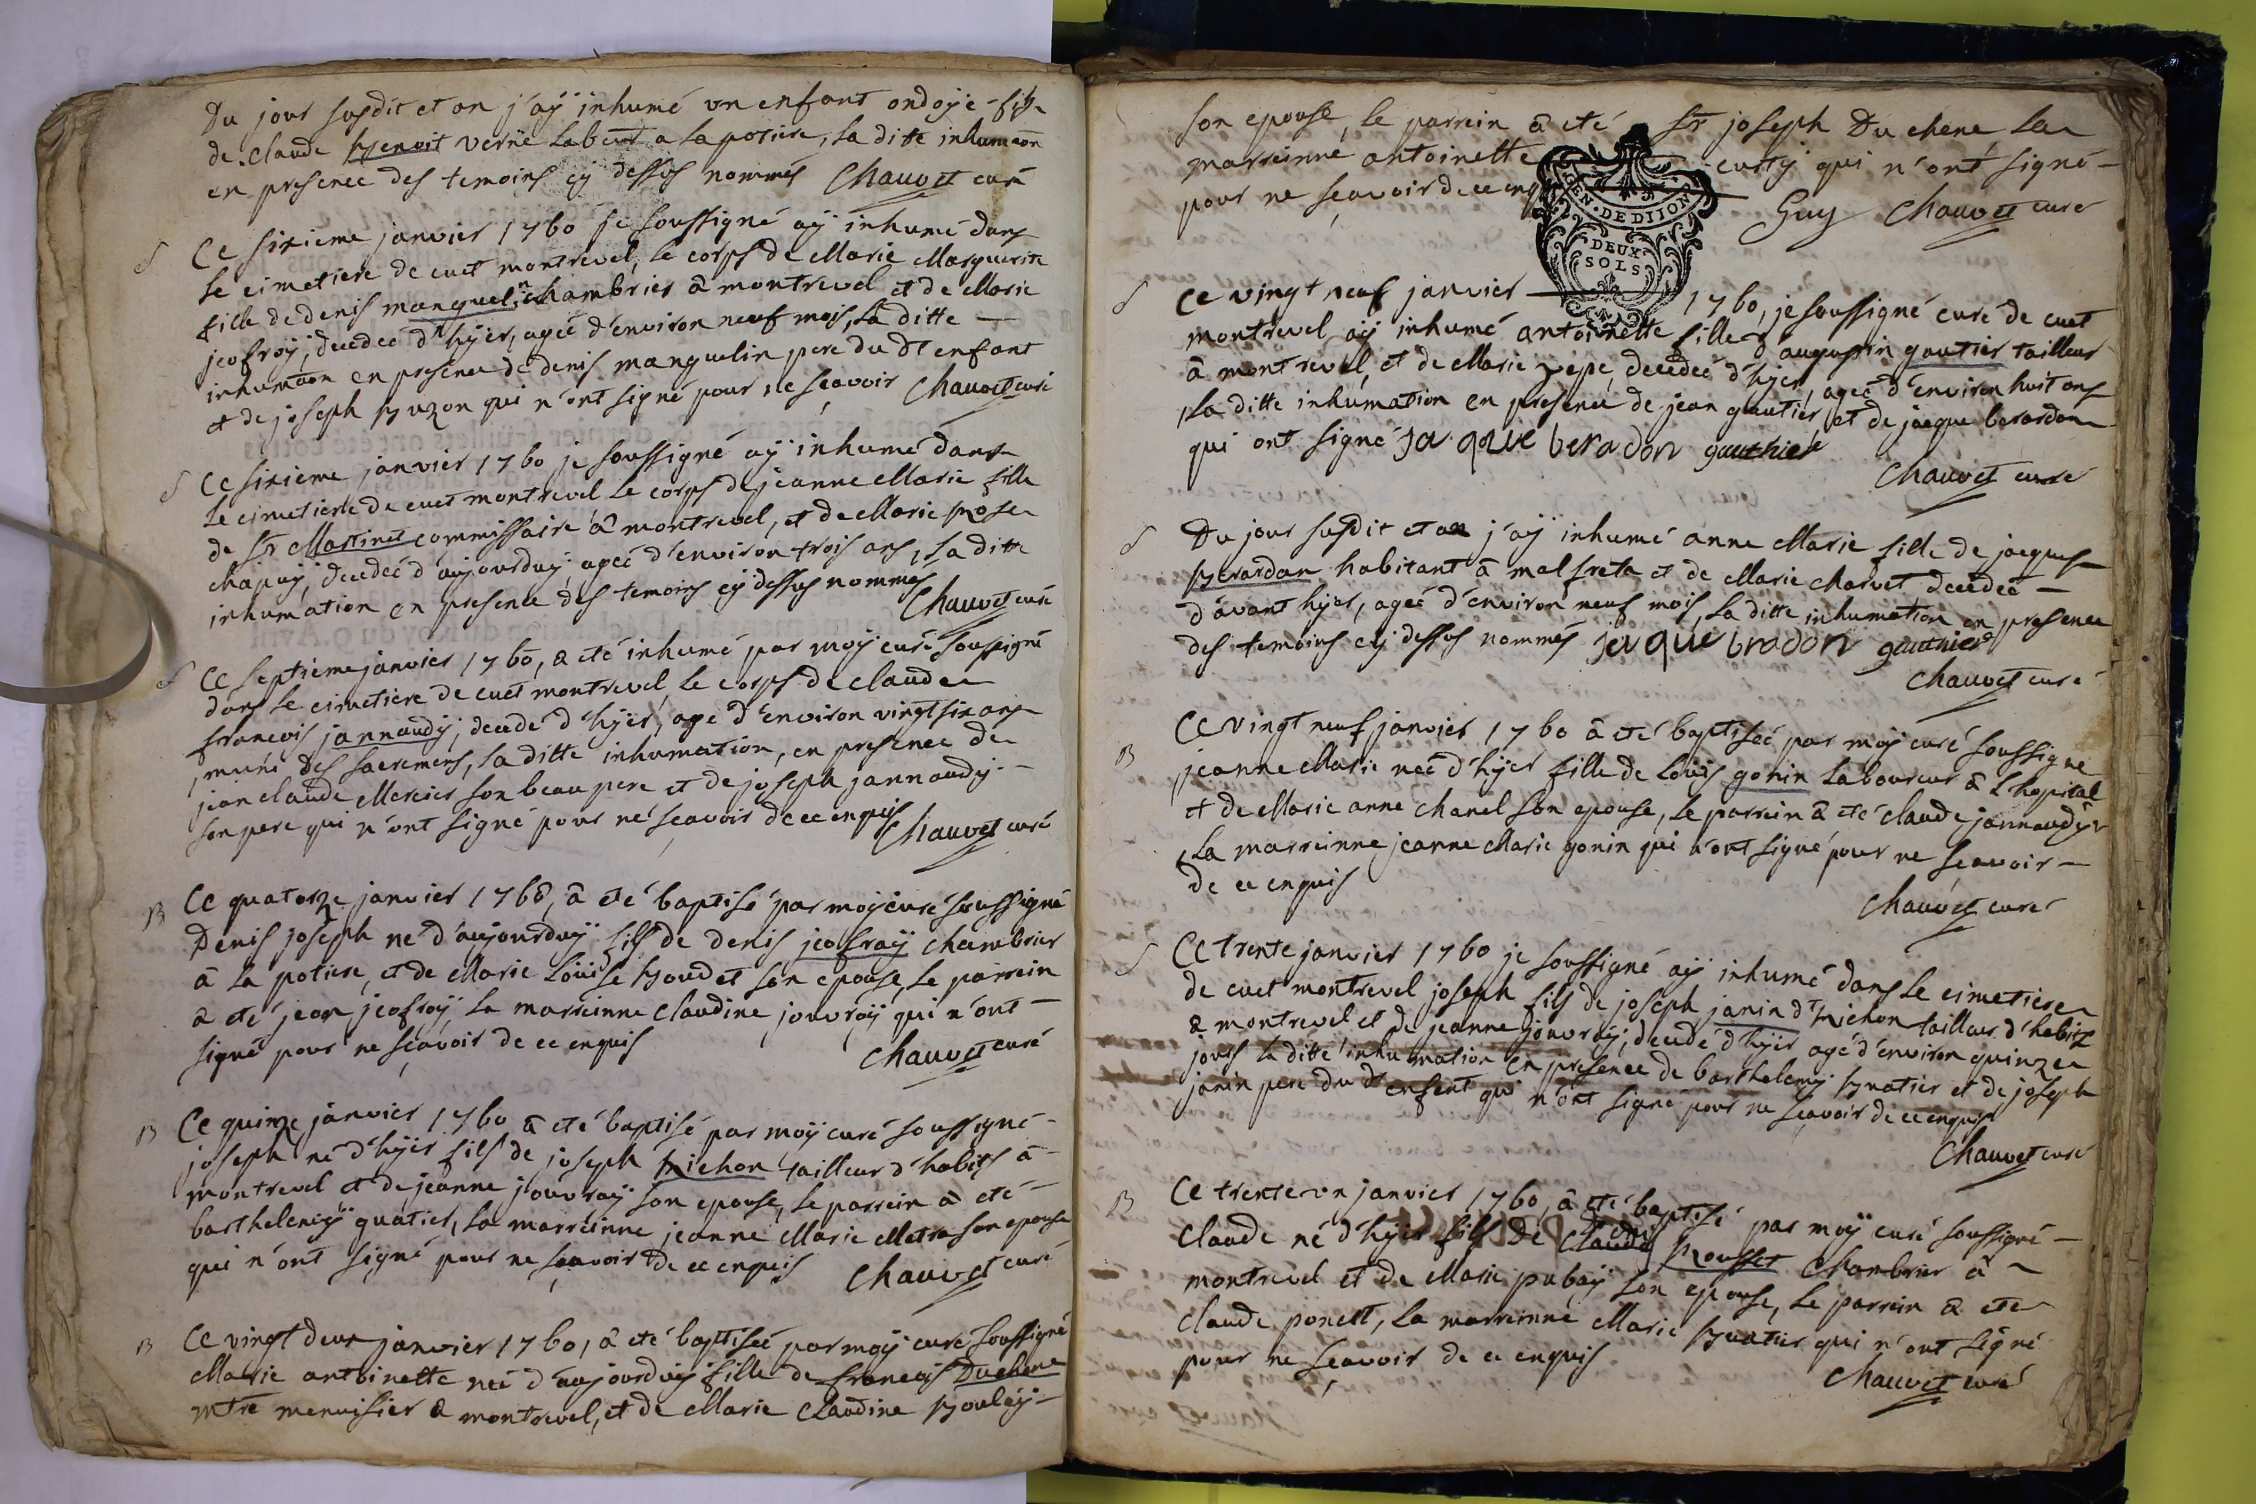 Du jour susdit et an j'aÿ inhumé un enfant ondoÿé fils
de claude benoit verne labeur a la potiere, la ditte inhumaon
en presence des temoins cÿ dessus nommés Chauvet curé
S Ce sixieme janvier 1760 je soussigné aÿ inhumé dans
le cimetiere de cuet montrevel, le corps de Marie Marguerite
fille de denis manguelin chambrier â montrevel et de Marie
jeofroÿ, decedeé d'hÿer, ageé d'environ neuf mois, la ditte
inhumaon en presence de denis manguelin pere du dt enfant
et de joseph buzon qui n'ont signé pour ne sçavoir Chauvet curé
S Ce sixieme janvier 1760 je soussigné aÿ inhumé dans
le cimetiere de cuet montrevel le corps de jeanne Marie fille
de Sr Martinet commissaire â montrevel, et de Marie rose
chapuÿ, decedeé d'aujourduÿ, ageé d'environ trois ans, la ditte
inhumation en presence des temoins cÿ dessus nommés
Chauvet curé
S Ce septieme janvier 1760, a eté inhumé par moÿ curé soussigné
dans le cimetiere de cuet montrevel, le corps de claude
francois jannaudÿ, decedé d'hÿer, agé d'environ vingt six ans
muni des sacremens, la ditte inhumation, en presence de
jean claude Mercier son beau pere et de joseph jannaudÿ
son pere qui n'ont signé pour ne sçavoir de ce enquis
Chauvet curé
B Ce quatorze janvier 1760, â eté baptisé par moÿ curé soussigné
Denis joseph né d'aujourduÿ fils de denis jeofraÿ chambrier
â la potiere, et de Marie Loüise boudet son epouse, le parrein
a eté jean jeofroÿ, la marreinne claudine jouvraÿ qui n'ont
signé pour ne sçavoir de ce enquis
Chauvet curé
B Ce quinze janvier 1760 â eté baptisé par moÿ curé soussigné
joseph né d'hÿer fils de joseph michon tailleur d'habits â
montrevel et de jeanne jouvraÿ son epouse, le parrein a eté
barthelemÿ guatier, la marreinne jeanne Marie Matra son epouse
qui n'ont signé pour ne sçavoir de ce enquis
Chauvet curé
B Ce vingt deux janvier 1760, â eté baptiseé par moÿ curé soussigné
Marie antoinette neé d'aujourduÿ fille de francois Duchene
mtre menuisier a montrevel, et de Marie Claudine bouleÿ
son epouse, le parrein â eté Sr joseph Du chene la
marreinne antoinette cursÿ qui n'ont signé
pour ne sçavoir de ce enquis
Guy Chauvet curé
GEN·DE DIJON
DEUX
SOLS
S Ce vingt neuf janvier 1760, je soussigné curé de cuet
montrevel aÿ inhumé antoinette fille d'augustin gautier tailleur
â montrevel, et de Marie pepe, decedeé d'hÿer, ageé d'environ huit ans
la ditte inhumation en presence de jean gautier, et de jacque berardon
qui ont signé ja que beradon gauthier
Chauvet curé
S Du jour susdit et an j'aÿ inhumé anne Marie fille de jacques
berardan habitant â malfreta et de Marie charvet decedeé
d'avant hÿer, ageé d'environ neuf mois, la ditte inhumation en presence
des temoins cÿ dessus nommés jaque bradon gauthier
Chauvet curé
B Ce vingt neuf janvier 1760 â eté baptiseé par moÿ curé soussigné
jeanne Marie neé d'hÿer fille de Loüis gonin laboureur â l'hopital
et de Marie anne chanel son epouse, le parrein â eté claude jannaudÿ
la marreinne jeanne Marie gonin qui n'ont signé pour ne sçavoir
de ce enquis
Chauvet curé
S Ce trente janvier 1760 je soussigné aÿ inhumé dans le cimetiere
de cuet montrevel joseph fils de joseph janin dt michon tailleur d'habits
a montrevel et de jeanne jouvraÿ, decedé d'hÿer agé d'environ quinze
jours la ditte inhumation en presence de barthelemÿ guatier et de joseph
janin pere du dt enfent qui n'ont signé pour ne sçavoir de ce enquis
Chauvet curé
B Ce trente un janvier 1760, â eté baptisé par moÿ curé soussigné
Claude né d'hÿer fils de claude rousset Chambrier â
montrevel et de Marie pubaÿ son epouse, le parrein a eté
Claude ponett, la marreinne Marie guatier qui n'ont signé
pour ne sçavoir de ce enquis
Chauvet curé